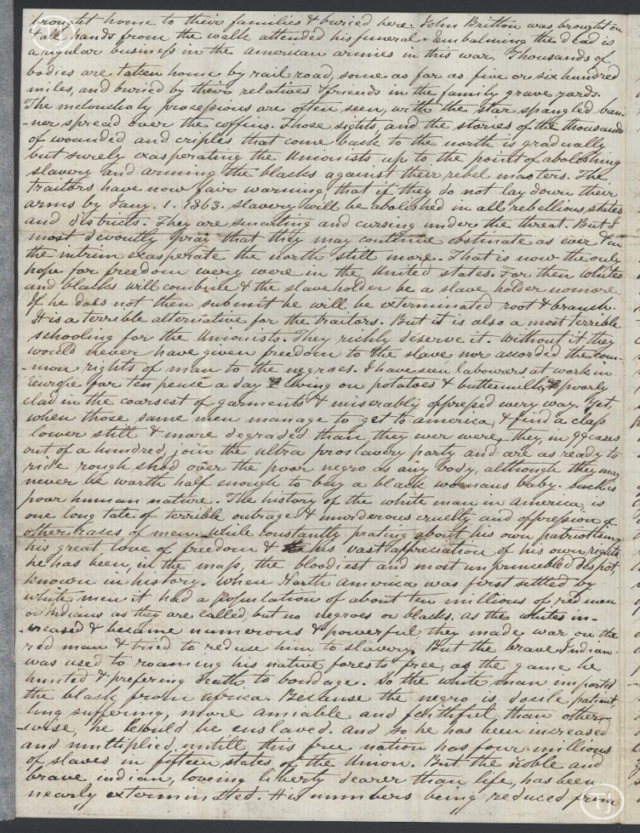 brought home to their families & buried here. John Britton was brought on
& all hands from the walk attended his funeral. Embalming the dead is
a regular business in the american armies in this war. Thousands of
bodies are taken home by rail road, some as far as five or six hundred
miles, and buried by there relatives & friends in the family grave yards.
The melancholy processions are often seen, with the star spangled ban-
-ner spread over the coffins. Those sights, and the stories of the thousands
of wounded and criples that come back to the north is gradually
but surely exasperating the Unionists up to the point of abolishing
slavery and arming the blacks against their rebel masters. The
traitors have now fair warning that if they do not lay down their
arms by Jany. 1. 1863. slavery will be abolished in all rebellious states
and districts. They are smarting and cursing under the threat. But I
most devoutly pray that they may continue obstinate as ever & in
the intrim exasperate the north still more. That is now the only
hope for freedom every were in the United states. For then whites
and blacks will combine & the slaveholder be a slave holder nomore.
If he does not then submit he will be exterminated root & branch.
It is a terrible alternative for the traitors. But it is also a most terrible
schooling for the Unionists. They richly deserve it. Without it they
would never have given freedom to the slave nor accorded the com-
-mon rights of man to the negroes. I have seen labourers at work in
Europe for ten pence a day living on potatoes & buttermilk, poorly
clad in the coarsest of garments & miserably oppresed every way. Yet,
when those same men manage to get to america, & find a class
lower still & more degraded than they ever were, they, in 99 cases
out of a hundred, join the ultra proslavery party and are as ready to
ride rough shod over the poor negro as any body, although they may
never be worth half enough to buy a black womans baby. Such is
poor human nature. The history of the white man in america, is
one long tale of terrible outrage & murderous cruelty and oppresion of
other races of men. While constantly prating about his own patriotism,
his great love of freedom & his vast appreciation of his own rights
he has been, in the mass, the bloodiest and most unprincipled despot
known in history. When North America was first settled by
white men it had a population of about ten millions of red men
or Indians as they are called, but no negroes or blacks. As the whites in-
-creased & became numerous & powerful they made war on the
red man & tried to reduce him to slavery. But the brave Indian
was used to roaming his native forests free, as the game he
hunted & prefering death to bondage. So the white man imported
the black from africa. Because the negro is docile, patient
long suffering, more amiable and faithful than other-
-wise, he could be enslaved. And so he has been increased
and multiplied, untill this free nation has four millions
of slaves in fifteen states of the Union. But the noble and
brave indian, loveing liberty dearer than life, has been
nearly exterminated. His numbers being reduced from